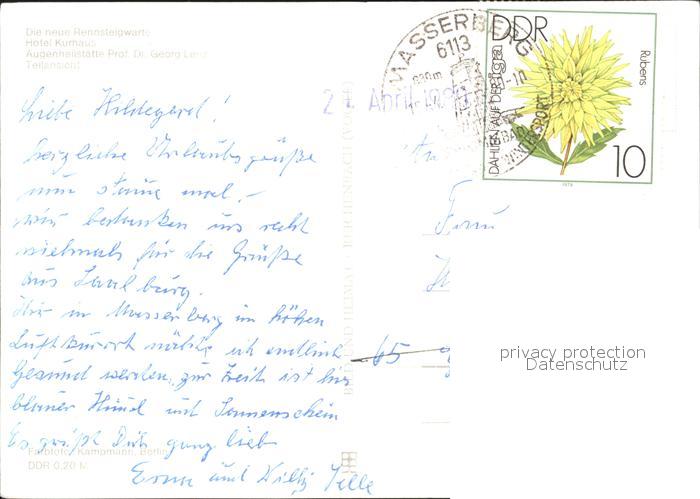 Die neue Rennsteigwarte
Hotel Kurhaus
Augenheilstätte Prof. Dr. Georg Lenz
Teilansicht
Liebe Hildegard!
herzliche Urlaubsgrüße
nun staune mal.-
wir bedanken uns recht
vielmals für die Grüße
aus Saalburg.
Hier in Masserberg im hohen
Luftkurort möchte ich endlich
Gesund werden, zur Zeit ist hier
blauer Himmel und Sonnenschein
Es grüßt Dich ganz lieb
Erna und Willy
Farbfoto: Kampmann, Berlin
DDR 0,20 M
BILD UND HEIMAT REICHENBACH (VOGTL)
April
MASSERBERG
6113
DDR
DAHLIEN AUF DER iga
Rubens
10
1979
WINTERSPORT
Frau
65
privacy protection
Datenschutz